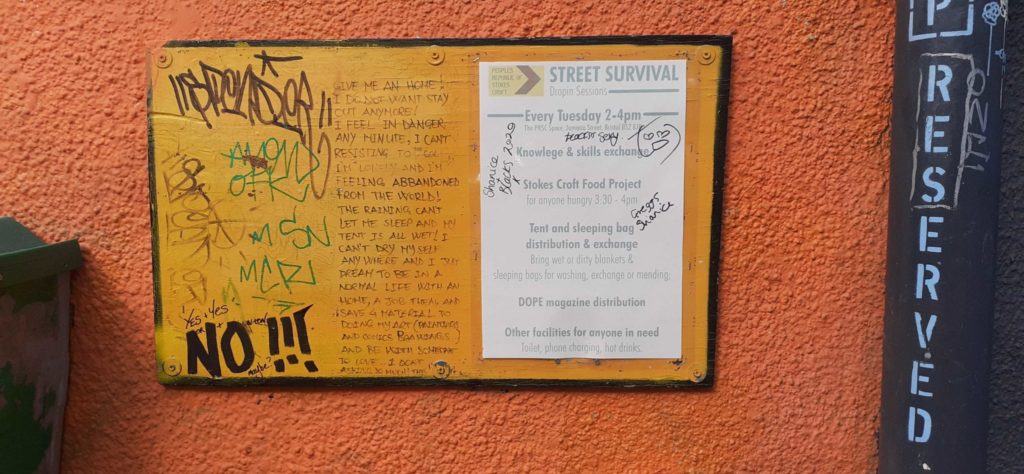 GIVE ME AN HOME!
I DO NOT WANT STAY
OUT ANYMORE!
I FEEL IN DANGER
ANY MINUTE, I CAN'T
RESISTING TO
I'M LONELY AND I'M
FEELING ABBANDONED
FROM THE WORLD!
THE RAINING CAN'T
LET ME SLEEP AND MY
TENT IS ALL WET! I
CAN'T DRY MYSELF
ANY WHERE AND I JUST
DREAM TO BE IN A
NORMAL LIFE WITH AN
HOME, A JOB THEN, AND
SAVE 4 MATERIAL TO
DOING MY ART (PAINTINGS
AND COMICS
AND BE WITH
TO LOVE. I DON'T
ASKING SO MUCH!
MSN
Yes + Yes
NO!!!
maybe?
PEOPLES
REPUBLIC OF
STOKES
CROFT
STREET SURVIVAL
Dropin Sessions
Every Tuesday 2-4pm
The PRSC Space, Jamaica Street, Bristol BS2
Knowlege & skills exchange
Shanice
Blacks 2020
Stokes Croft Food Project
for anyone hungry 3:30 - 4pm
Greggs
Shanice
Tent and sleeping bag
distribution & exchange
Bring wet or dirty blankets &
sleeping bags for washing, exchange or mending;
DOPE magazine distribution
Other facilities for anyone in need
Toilet, phone charging, hot drinks.
P
RESERVED